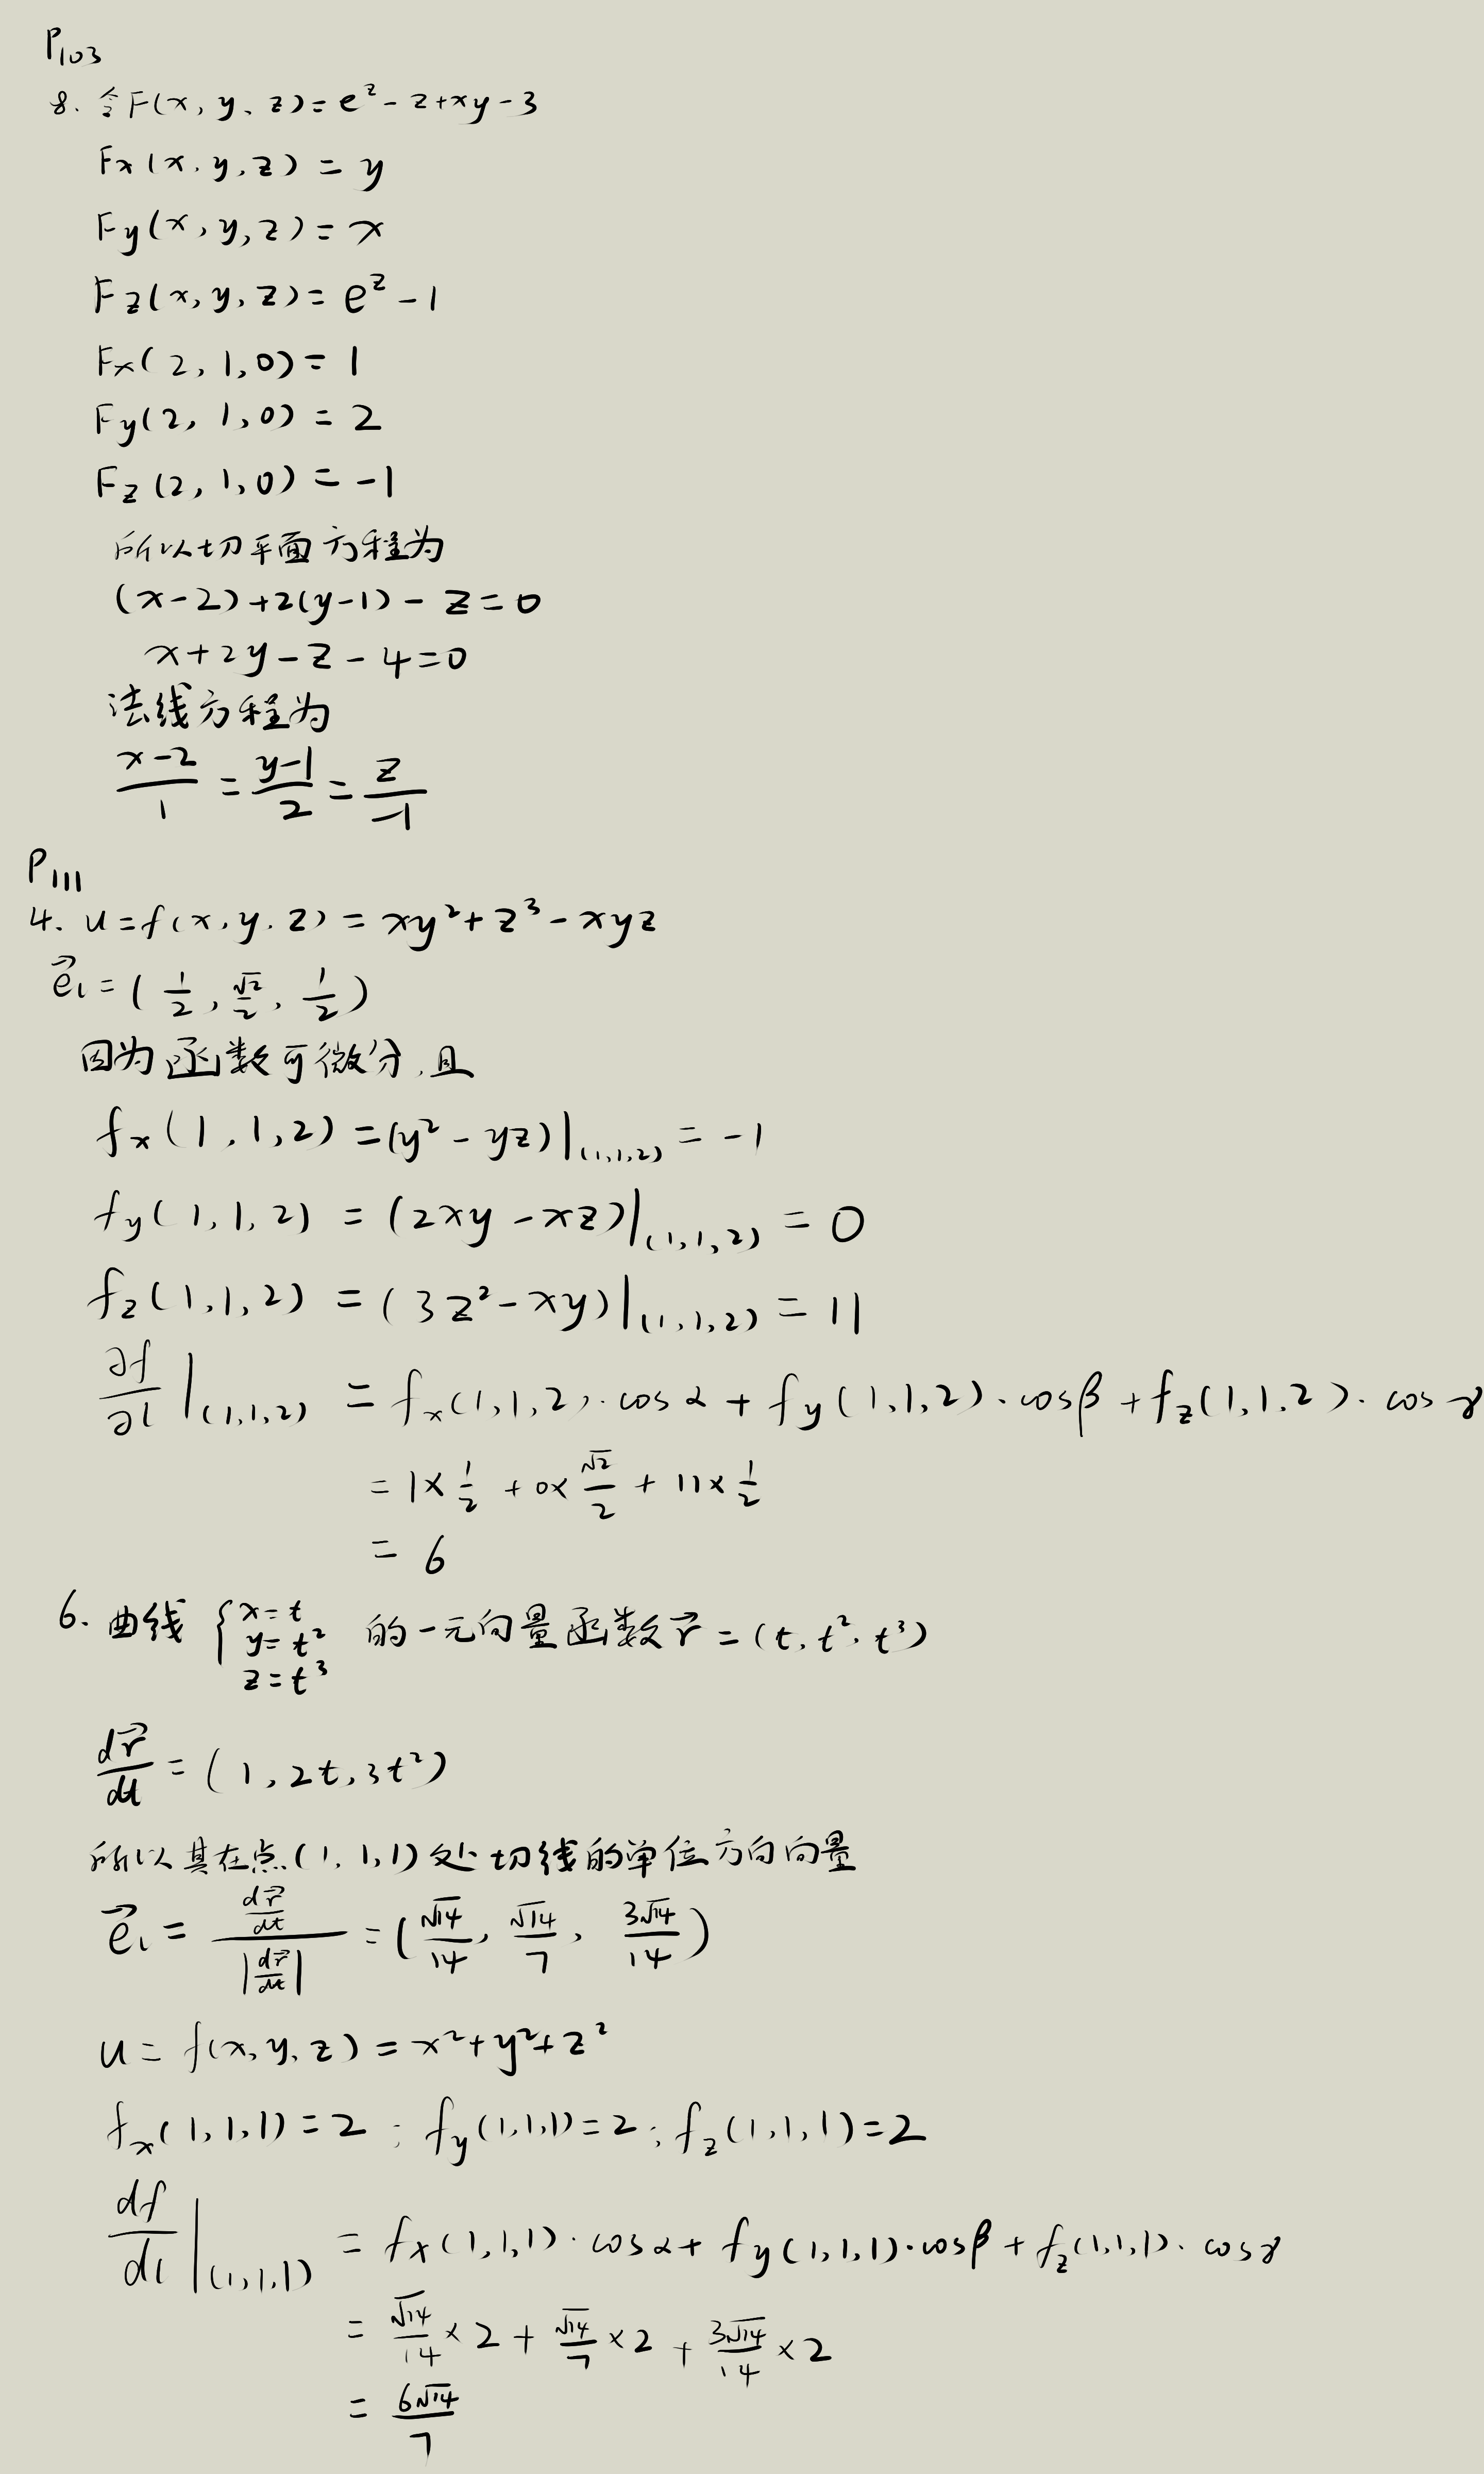 P₁₀₃
8. 令F(x, y, z) = e^z - z + xy - 3
Fx(x, y, z) = y
Fy(x, y, z) = x
Fz(x, y, z) = e^z - 1
Fx(2, 1, 0) = 1
Fy(2, 1, 0) = 2
Fz(2, 1, 0) = -1
所以切平面方程为
(x-2)+2(y-1)-z=0
x+2y-z-4=0
法线方程为
(x-2)/1 = (y-1)/2 = z/(-1)
P₁₁₁
4. u=f(x, y, z) = xy²+z³-xyz
e⃗ₗ = (1/2, √2/2, 1/2)
因为函数可微分,且
fx(1,1,2) = (y²-yz)|(1,1,2) = -1
fy(1,1,2) = (2xy-xz)|(1,1,2) = 0
fz(1,1,2) = (3z²-xy)|(1,1,2) = 11
∂f/∂l|(1,1,2) = fx(1,1,2)·cosα + fy(1,1,2)·cosβ + fz(1,1,2)·cosγ
= 1×1/2 + 0×√2/2 + 11×1/2
= 6
6. 曲线 {x=t y=t² z=t³ 的一元向量函数r⃗=(t, t², t³)
dr⃗/dt = (1, 2t, 3t²)
所以其在点(1,1,1)处切线的单位方向向量
e⃗ₗ = (dr⃗/dt)/|dr⃗/dt| = (√14/14, √14/7, 3√14/14)
u = f(x, y, z) = x²+y²+z²
fx(1,1,1)=2 ; fy(1,1,1)=2 ; fz(1,1,1)=2
df/dl|(1,1,1) = fx(1,1,1)·cosα + fy(1,1,1)·cosβ + fz(1,1,1)·cosγ
= √14/14×2 + √14/7×2 + 3√14/14×2
= 6√14/7